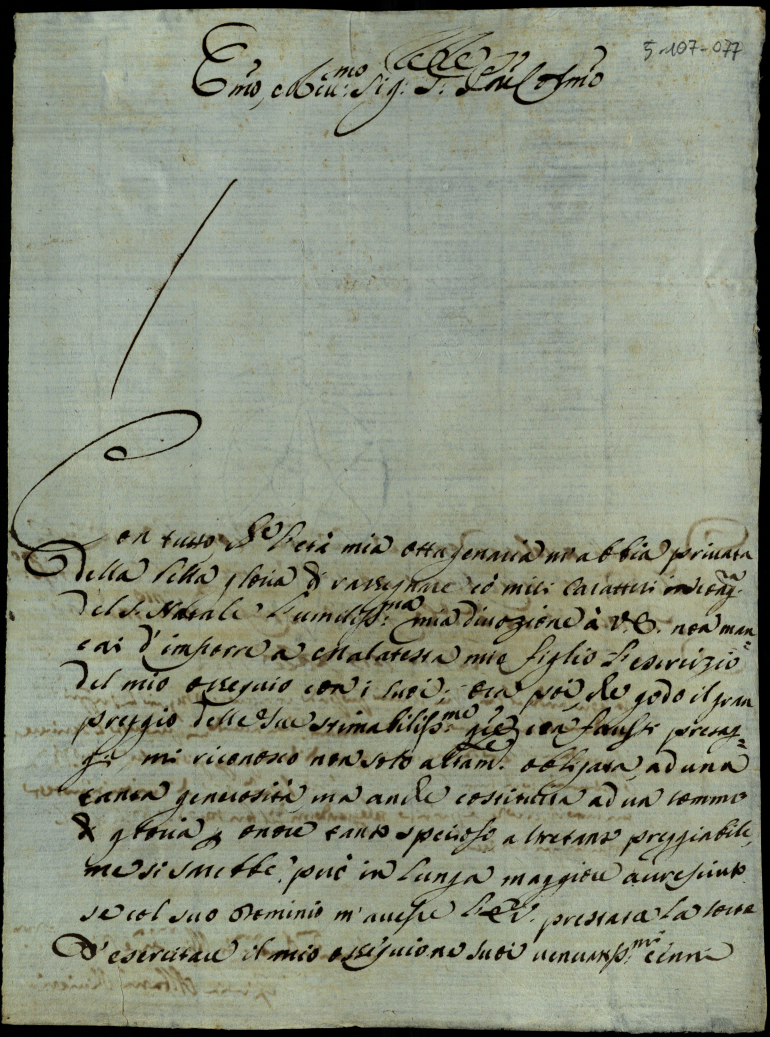 5-107-077
Emo, e Rmo: Sig: P: Colmo
Con tutto che l'età mia ottagenaria m'abbia privata
della bella gloria di rassegnare cò miei caratteri
del S. Natale l'umiliss:ma mia divozione à V. E. non man=
cai d'imporre a Malatesta mio figlio l'esercizio
del mio ossequio con i suoi, ora poi, che godo il gran
preggio delle sue stimabiliss:me con fausti presag=
gi mi riconosco non solo altam: obligata, ad una
tanta generosità, ma anche costituita ad un sommo
di gloria, onore tanto specioso altretanto preggiabile,
me si sarebbe, però in lunga maggiore accresciuto
se col suo Dominio m'avesse l'E.V. prestata la sorte
D'esercitare il mio ossequio ne suoi veneratiss:mi cenni